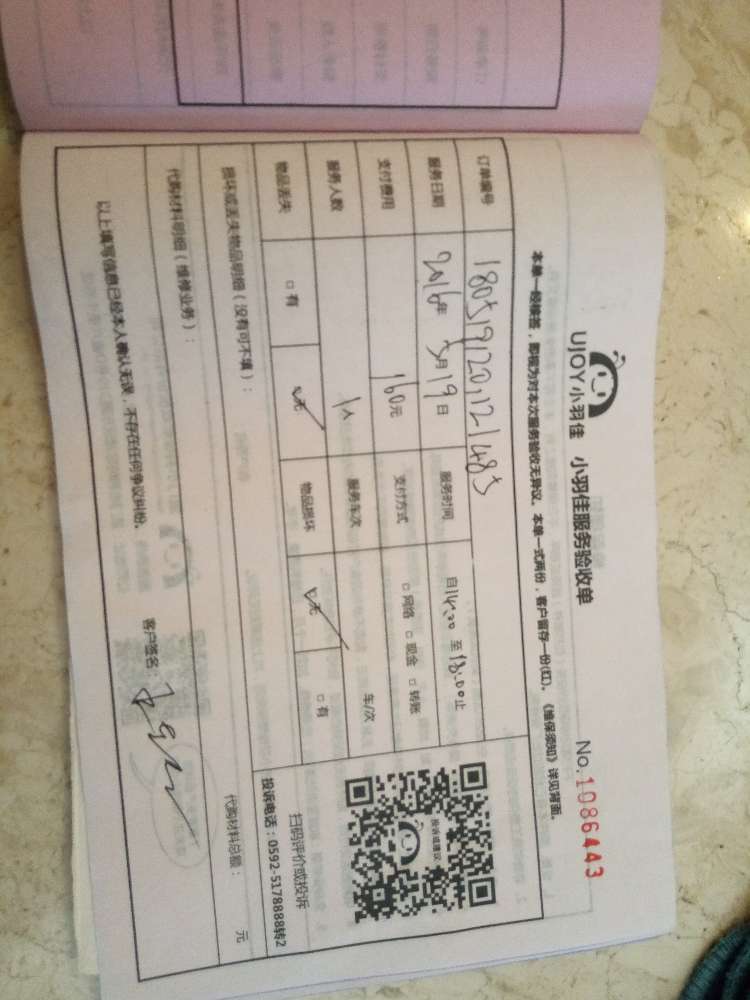 UJOY小羽佳 小羽佳服务验收单 No.1086443
本单一经接签，即视为对本次服务验收无异议。本单一式两份，客户留存一份(红)。《维保须知》详见背面。
订单编号 180519120121485
服务日期 2016年 5月 19日 服务时间 自14:00 至 18:00止
支付费用 160元 支付方式 □网络 □现金 □转账
服务人数 1人 服务车次 车/次
物品丢失 □有 ☑无 物品损坏 ☑无 □有
损坏或丢失物品明细（没有可不填）：
代购材料明细（维修业务）： 代购材料总额： 元
以上填写信息已经本人确认无误，不存在任何争议纠纷。
客户签名：
投诉或建议
扫码评价或投诉
投诉电话：0592-5178888转2